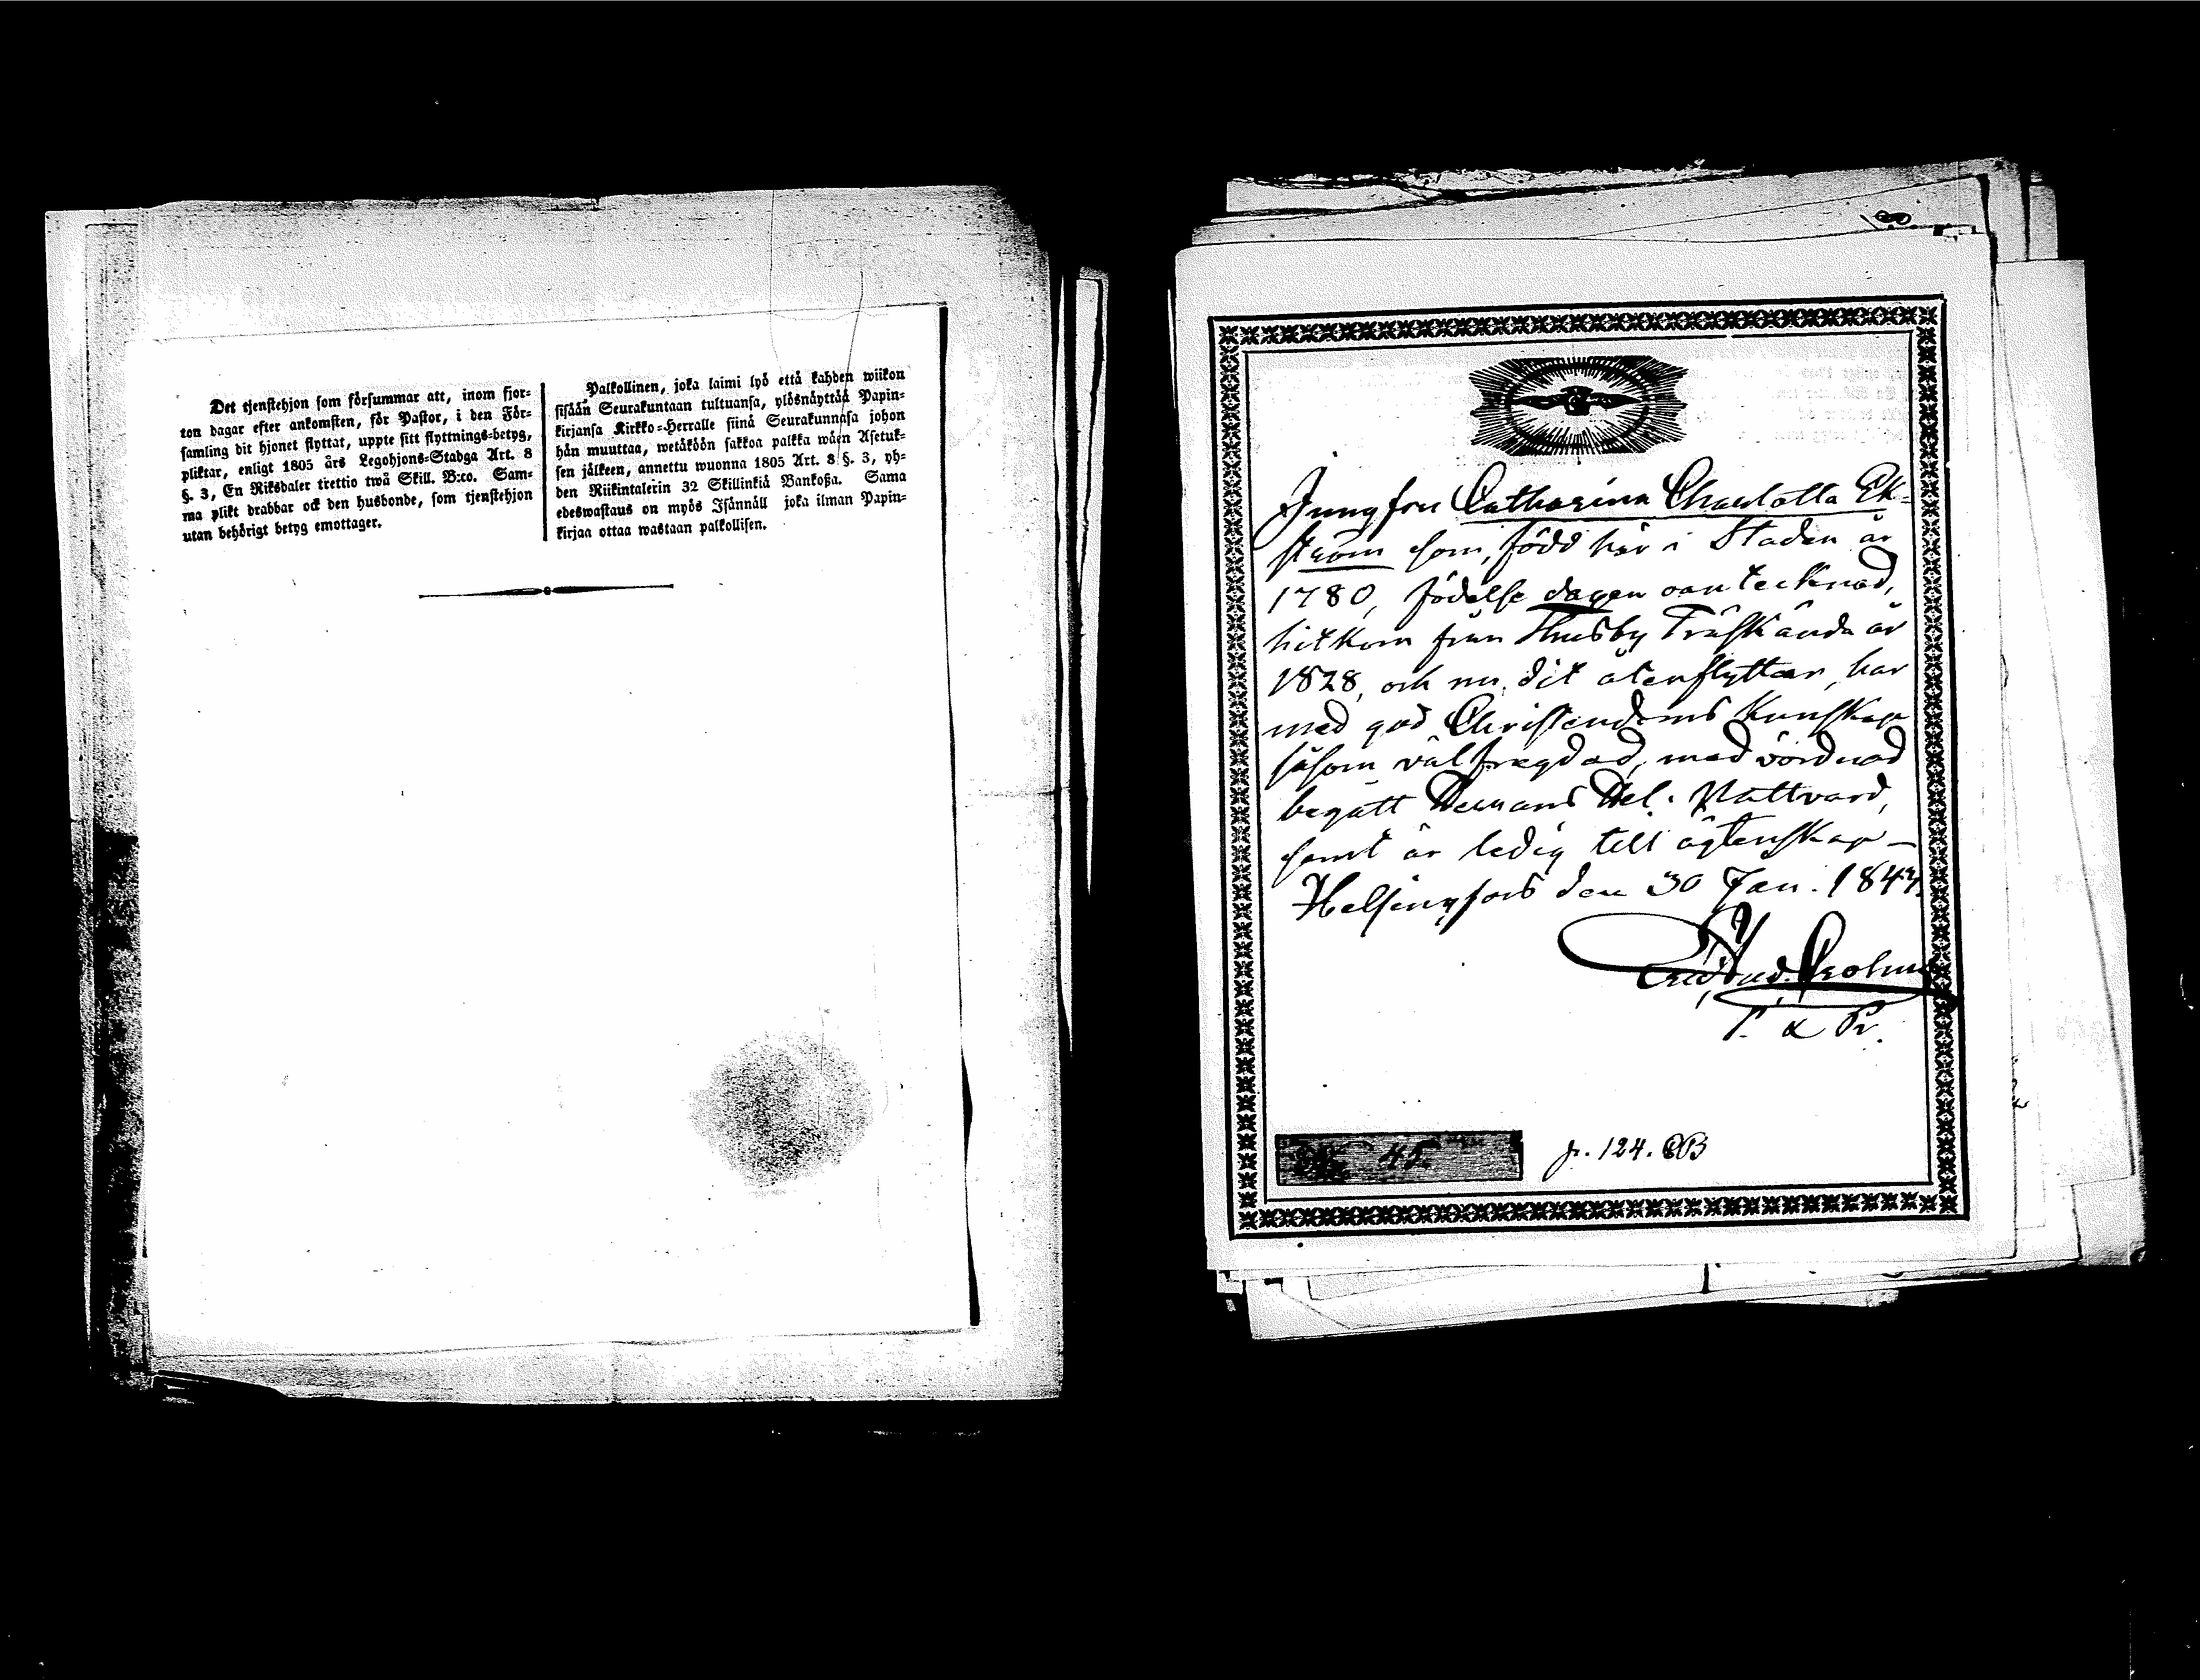 Det tjenstehjon som försummar att, inom fjor-
ton dagar efter ankomsten, för Pastor, i den För-
samling dit hjonet flyttat, uppte sitt flyttnings-betyg,
pliktar, enligt 1805 års Legohjons-Stadga Art. 8
§. 3, En Riksdaler trettio twå Skill. B:co. Sam-
ma plikt drabbar ock den husbonde, som tjenstehjon
utan behörigt betyg emottager.
Palkollinen, joka laimi lyö että kahden wiikon
sisään Seurakuntaan tultuansa, ylösnäyttää Papin-
kirjansa Kirkko-Herralle siinä Seurakunnasa johon
hän muuttaa, wetäköön sakkoa palkka wäen Asetuk-
sen jälkeen, annettu wuonna 1805 Art. 8 §. 3, yh-
den Riikintalerin 32 Skillinkiä Bankoßa. Sama
edeswastaus on myös Isännäll joka ilman Papin-
kirjaa ottaa wastaan palkollisen.
Jungfru Catharina Charlotta Ek-
ström som, född här i Staden år
1780, födelse dagen oantecknad,
hitkom från Thusby Träskända år
1828, och nu dit återflyttar, har
med god Christendoms kunskap
såsom välfregdad, med vördnad
begått Herrans Hel. Nattvard,
samt är ledig till ägtenskap —
Helsingfors den 30 Jan. 184
P. &
45.
p. 124.